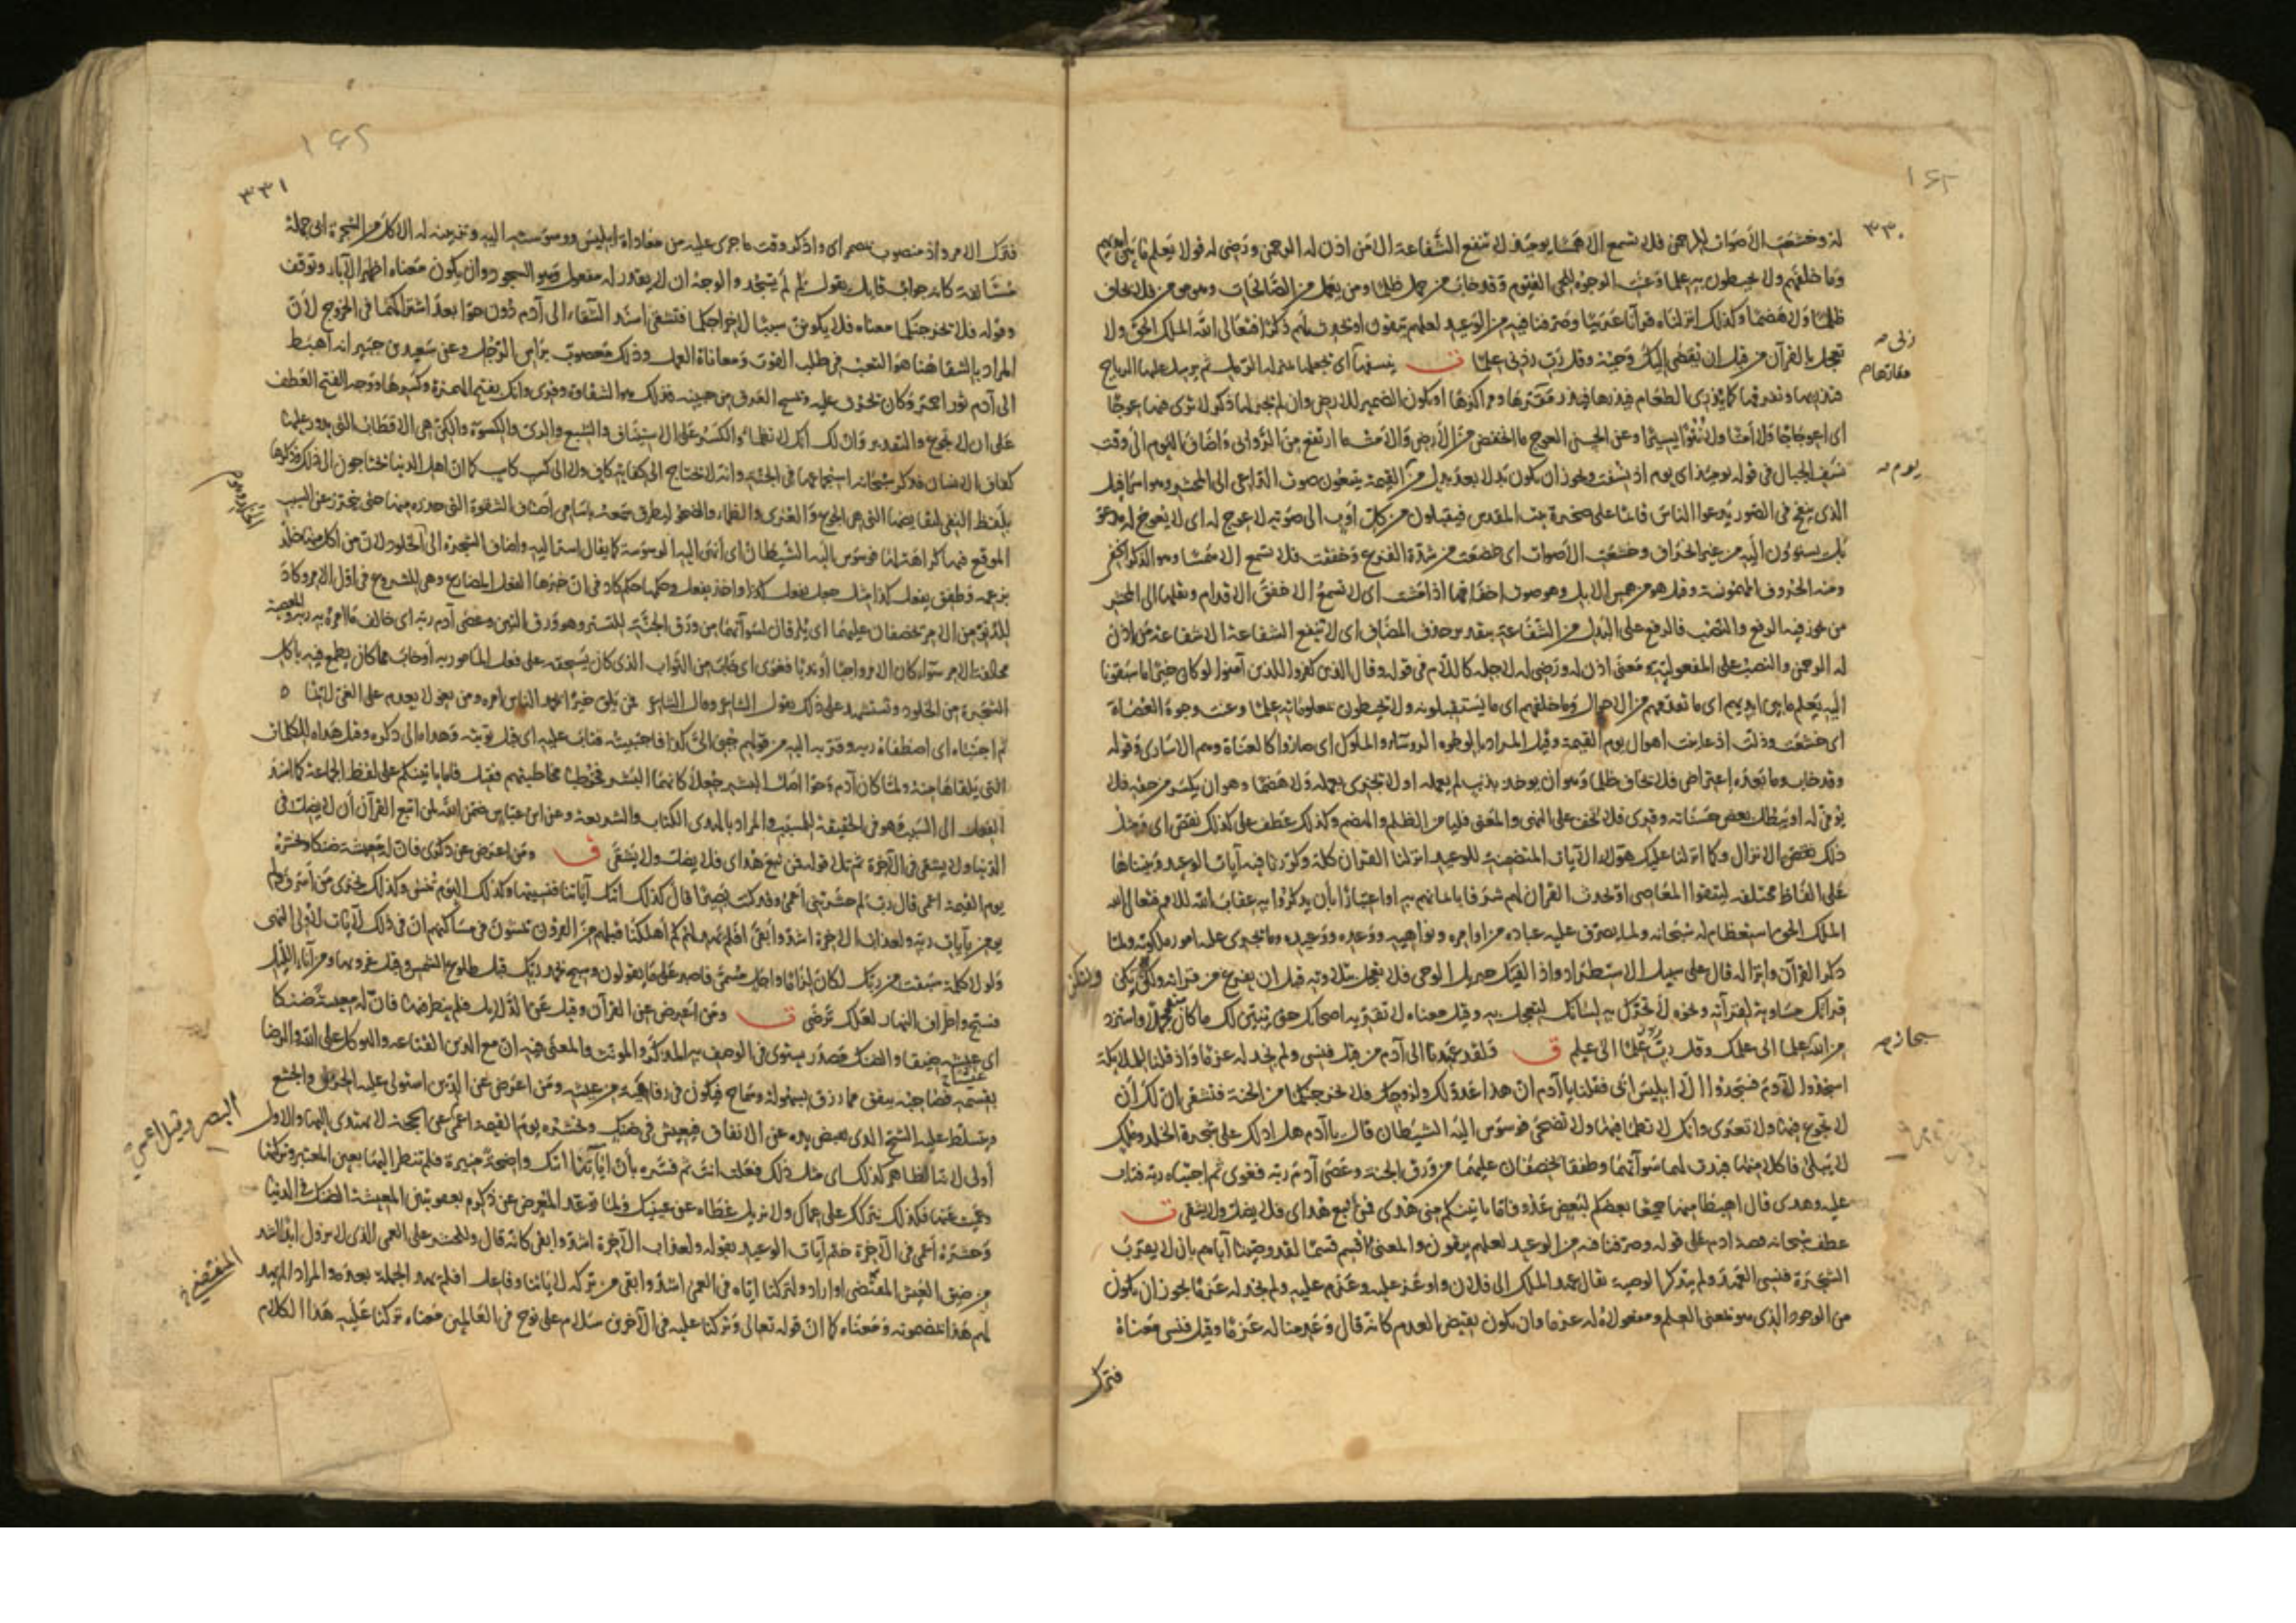 ٣٣٠
له وخشعت الأصوات للرحمن فلا تسمع الا همسا يومئذ لا تنفع الشفاعة الا من اذن له الرحمن ورضى له قولا يعلم ما بين ايديهم
وما خلفهم ولا يحيطون به علما وعنت الوجوه للحى القيوم وقد خاب من حمل ظلما ومن يعمل من الصالحات وهو مومن فلا يخاف
ظلما ولا هضما وكذلك انزلناه قرآنا عربيا وصرفنا فيه من الوعيد لعلهم يتقون او يحدث لهم ذكرا فتعالى الله الملك الحق ولا
تعجل بالقرآن من قبل ان يقضى اليك وحيه وقل رب زدنى علما ف ينسفها اى يجعلها بمنزلة الرمل ثم يرسل عليها الرياح
فتذريها وتفرقها كما يذرى الطعام فيذرها فيذر مقارها ومراكزها او يكون الضمير للارض وان لم يجر لها ذكر لا ترى فيها عوجا
اى اعوجاجا ولا أمتا ولا نتوا يسيرا وعن الحسن العوج ما انخفض من الأرض والأمت ما ارتفع من الروابى واضاف اليوم الى وقت
نسف الجبال فى قوله يومئذ اى يوم اذ نسفت ويجوز ان يكون بدلا بعد بدل من القيمة يتبعون صوت الداعى الى المحشر وهو اسرافيل
الذى ينفخ فى الصور يدعوا الناس قائما على صخرة بيت المقدس فيقبلون من كل اوب الى صوته لا عوج له اى لا يعوج له مدعو
بل يستوون اليه من غير انحراف وخشعت الأصوات اى خضعت من شدة الفزع وخفتت فلا تسمع الا همسا وهو الذكر الخفى
ومنه الحروف المهموسة وقيل هو من همس الابل وهو صوت اخفافها اذا مشت اى لا تسمع الا خفق الاقدام ونقلها الى المحشر
من يجوز فيه الرفع والنصب فالرفع على البدل من الشفاعة بتقدير حذف المضاف اى لا تنفع الشفاعة الا شفاعة من اذن
له الرحمن والنصب على المفعولية ومعنى اذن له ورضى له لاجله كاللام فى قوله وقال الذين كفروا للذين آمنوا لو كان خيرا ما سبقونا
اليه يعلم ما بين ايديهم اى ما تقدمهم من الاحوال وما خلفهم اى ما يستقبلونه ولا يحيطون بمعلوماته علما وعنت وجوه العصاة
اى خشعت وذلت اذ عاينت اهوال يوم القيمة وقيل المراد بالوجوه الروساء والملوك اى صاروا كالعناة وهم الاسارى وقوله
وقد خاب وما بعده اعتراض فلا يخاف ظلما وهو ان يوخذ بذنب لم يعمله او لا يجزى بعمله ولا هضما وهو ان يكسر من حقه فلا
يوفى له او يبطل بعض حسناته وقرى فلا يخف على النهى والمعنى فليامن الظلم والهضم وكذلك عطف على كذلك نقص اى ومثل
ذلك نقص الانزال وكما انزلنا عليك هولاء الآيات المتضمنة للوعيد انزلنا القرآن كله وكررنا فيه آيات الوعيد وبيناها
على الفاظ مختلفة ليتقوا المعاصى او يحدث القرآن لهم شرفا بايمانهم به او اعتبارا بأن يذكروا به عقاب الله للامم فتعالى الله
الملك الحق استعظام له سبحانه ولما يصرف عليه عباده من اوامره ونواهيه ووعده ووعيده وما يجرى عليه امور ملكوته ولما
ذكر القرآن وانزاله قال على سبيل الاستطراد واذا القيك جبريل الوحى فلا تعجل بتلاوته قبل ان يفرغ من قراءته ولكن
قرانك مساوية لقرآته ونحوه لا تحرك به لسانك لتعجل به وقيل معناه لا تقريه اصحابك حتى يتبين لك ما كان مجملا واستزد
من الله علما الى علمك وقل رب زدنى علما الى علم ف ولقد عهدنا الى آدم من قبل فنسى ولم نجد له عزما واذ قلنا للملائكة
اسجدوا لآدم فسجدوا الا ابليس ابى فقلنا يا آدم ان هذا عدو لك ولزوجك فلا يخرجنكما من الجنة فتشقى ان لك أن
لا تجوع فيها ولا تعرى وانك لا تظما فيها ولا تضحى فوسوس اليه الشيطان قال يا آدم هل ادلك على شجرة الخلد وملك
لا يبلى فاكلا منها فبدت لهما سوآتهما وطفقا يخصفان عليهما من ورق الجنة وعصى آدم ربه فغوى ثم اجتباه ربه فتاب
عليه وهدى قال اهبطا منها جميعا بعضكم لبعض عدو فاما ياتينكم منى هدى فمن اتبع هداى فلا يضل ولا يشقى ف
عطف سبحانه قصة ادم على قوله وصرفنا فيه من الوعيد لعلهم يتقون والمعنى اقسم قسما لقد وصينا آباهم بان لا يقرب
الشجرة فنسى العهد ولم يتذكر الوصية يقال عهد الملك الى فلان واوعز عليه وعزم عليه ولم نجد له عزما يجوز ان يكون
من الوجود الذى هو بمعنى العلم ومفعولاه له عزما وان يكون نقيض العدم كانه قال وعدمنا له عزما وقيل فنسى معناه
فترك
٣٣١
فترك الامر واذ منصوب بمضمر اى واذكر وقت ما جرى عليه من معاداة ابليس ووسوسته اليه وتزيينه له الاكل من الشجرة ابى جملة
مستانفة كانه جواب قايل يقول لم لم يسجد والوجه ان لا يقدر له مفعول وهو السجود وان يكون معناه اظهر الآباء وتوقف
وقوله فلا يخرجنكما معناه فلا يكونن سببا لاخراجكما فتشقى اسند الشقاء الى آدم دون حوا بعد اشتراكهما فى الخروج لأن
المراد بالشقا هنا هو التعب فى طلب القوت ومعاناة العمل وذلك معصوب براس الرجل وعن سعيد بن جبير انه اهبط
الى آدم ثور احمر وكان يحرث عليه ويمسح العرق من جبينه فذلك هو الشقاوة وقرى وانك بفتح الهمزة وكسرها ووجه الفتح العطف
على ان لا تجوع والتقدير وان لك انك لا تظماء والكسر على الاستيناف والشبع والرى والكسوة والكن هى الاقطاب التى يدور عليها
كفاف الانسان فذكر سبحانه استجماعها فى الجنة وانه لا يحتاج الى كفاية كاف ولا الى كسب كاسب كما ان اهل الدنيا يحتاجون الى ذلك وذكرها
بلفظ النفى لنقايضها التى هى الجوع والعرى والظماء والضحو ليطرق سمعه باسامى اصناف الشقوة التى حذره منها حتى يتحرز عن السبب
الموقع فيها كراهة لها فوسوس اليه الشيطان اى أنهى اليه الوسوسة كما يقال اسر اليه واضاف الشجرة الى الخلود لان من اكل منها خلد
بزعمه وطفق يفعل كذا مثل جعل يفعل كذا واخذ يفعل وحكمها حكم كاد فى ان خبرها الفعل المضارع وهى للشروع فى اول الامر وكاد
للدنو من الامر يخصفان عليهما اى يلزقان لسوآتهما من ورق الجنة للتستر وهو ورق التين وعصى آدم ربه اى خالف ما امره به ربه
مخالفة الامر سواء كان الامر واجبا أو ندبا فغوى اى خاب من الثواب الذى كان يستحقه على فعل المامور به أو خاب مما كان يطمع فيه باكل
الشجرة من الخلود ويستشهد على ذلك بقول الشاعر فمن يلق خيرا يحمد الناس امره ومن يغو لا يعدم على الغى لائما
ثم اجتباه اى اصطفاه ربه وقربه اليه من قولهم جبى الى كذا فاجتبيته فتاب عليه اى قبل توبته وهداه الى ذكره وقيل هداه للكلمات
التى يلقاها منه ولما كان آدم وحوا اصل البشر جعلا كانهما البشر فخوطبا مخاطبتهم فقيل فاما ياتينكم على لفظ الجماعة كما اسند
الفعل الى السبب وهو فى الحقيقة للمسبب والمراد بالهدى الكتاب والشريعة وعن ابن عباس ضمن الله لمن اتبع القرآن أن لا يضل فى
الدنيا ولا يشقى فى الآخرة ثم تلا قوله فمن تبع هداى فلا يضل ولا يشقى ف ومن اعرض عن ذكرى فان له معيشة ضنكا ونحشره
يوم القيمة اعمى قال رب لم حشرتنى أعمى وقد كنت بصيرا قال كذلك اتتك آياتنا فنسيتها وكذلك اليوم تنسى وكذلك نجزى من أسرف ولم
يومن بآيات ربه ولعذاب الآخرة اشد وأبقى افلم يهد لهم كم أهلكنا قبلهم من القرون يمشون فى مساكنهم ان فى ذلك لآيات لاولى النهى
ولولا كلمة سبقت من ربك لكان لزاما واجل مسمى فاصبر على ما يقولون وسبح بحمد ربك قبل طلوع الشمس وقبل غروبها ومن آناء الليل
فسبح واطراف النهار لعلك ترضى ف ومن اعرض عن القرآن وقيل عن الدلايل فلم ينظر فيها فان له معيشة ضنكا
اى عيشا ضيقا والضنك مصدر يستوى فى الوصف به المذكر والمونث والمعنى فيه ان مع الدين القناعة والتوكل على الله والرضا
بقسمته فصاحبه ينفق مما رزق بسهولة وسماح فيكون فى رفاهية من عيشه ومن اعرض عن الدين استولى عليه الحرص والجشع
ويتسلط عليه الشح الذى يقبض يده عن الانفاق فيعيش فى ضنك ونحشره يوم القيمة اعمى عمى الحجة لا يهتدى اليها والاول
أولى لانه الظاهر كذلك اى مثل ذلك فعلت انت ثم فسره بأن آياتنا اتتك واضحة منيرة فلم تنظر اليها بعين المعتبر وتركتها
وعميت عنها فكذلك نتركك على عماك ولا نزيل غطاه عن عينيك ولما توعد المعرض عن ذكره بعقوبتين المعيشة الضنك فى الدنيا
وحشره أعمى فى الآخرة ختم آيات الوعيد بقوله ولعذاب الآخرة اشد وابقى كانه قال وللحشر على العمى الذى لا يزول ابدا اشد
من ضيق العيش المقتضى او اراد ولتركنا اياه فى العمى اشد وابقى من تركه لاياتنا وفاعل افلم يهد الجملة بعده والمراد الم يهد
لهم هذا بمضمونه ومعناه كما ان قوله تعالى وتركنا عليه فى الآخرين سلام على نوح فى العالمين معناه تركنا عليه هذا الكلام